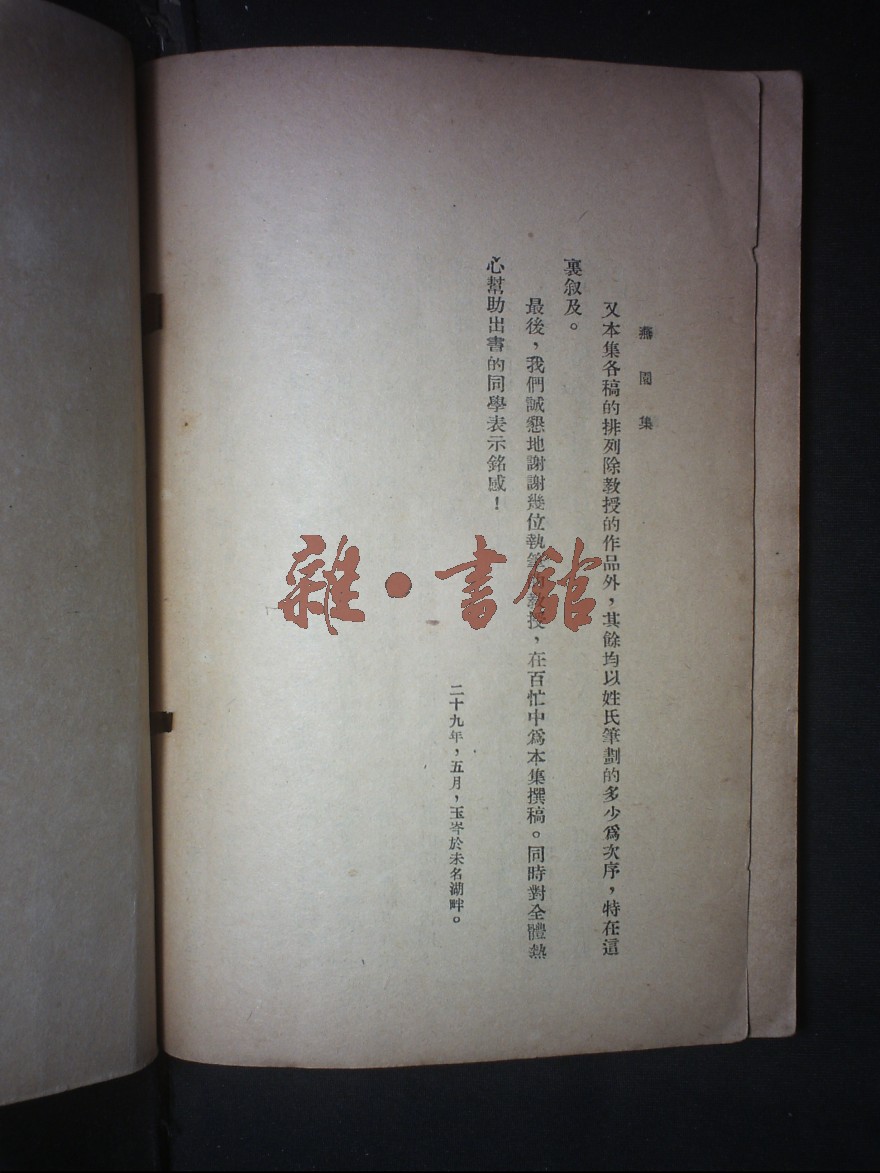 燕園集
又本集各稿的排列除教授的作品外，其餘均以姓氏筆劃的多少爲次序，特在這
裏叙及。
最後，我們誠懇地謝謝幾位執筆的教授，在百忙中爲本集撰稿。同時對全體熱
心幫助出書的同學表示銘感！
二十九年，五月，玉岑於未名湖畔。
雜·書館